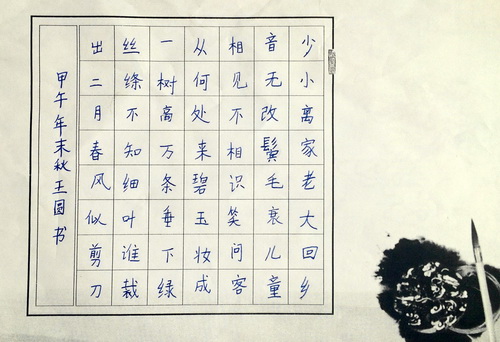 少小离家老大回乡
音无改鬓毛衰儿童
相见不相识笑问客
从何处来碧玉妆成
一树高万条垂下绿
丝绦不知细叶谁裁
出二月春风似剪刀
甲午年末秋王圆书